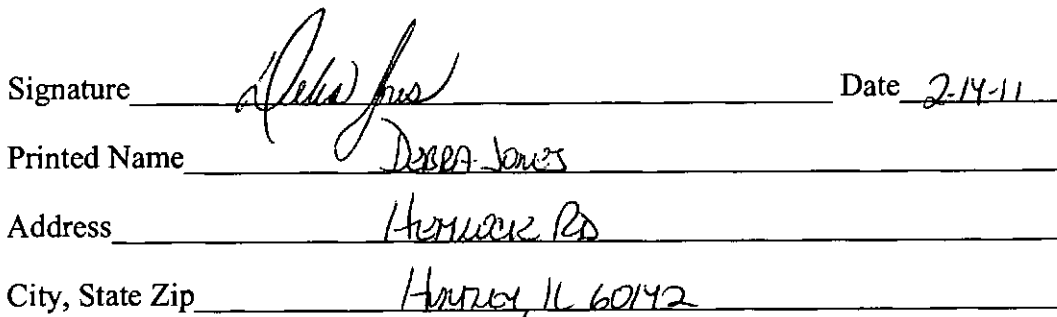 Signature Debra Jones Date 2-14-11
Printed Name DEBRA JONES
Address HEMLOCK RD
City, State Zip HUNTLEY, IL 60142